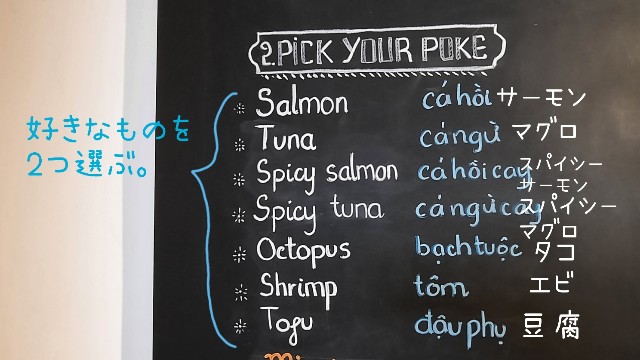 2. PICK YOUR POKE
好きなものを
2つ選ぶ。
Salmon cá hồi サーモン
Tuna cá ngừ マグロ
Spicy salmon cá hồi cay スパイシー
サーモン
Spicy tuna cá ngừ cay スパイシー
マグロ
Octopus bạch tuộc タコ
Shrimp tôm エビ
Tofu đậu phụ 豆腐